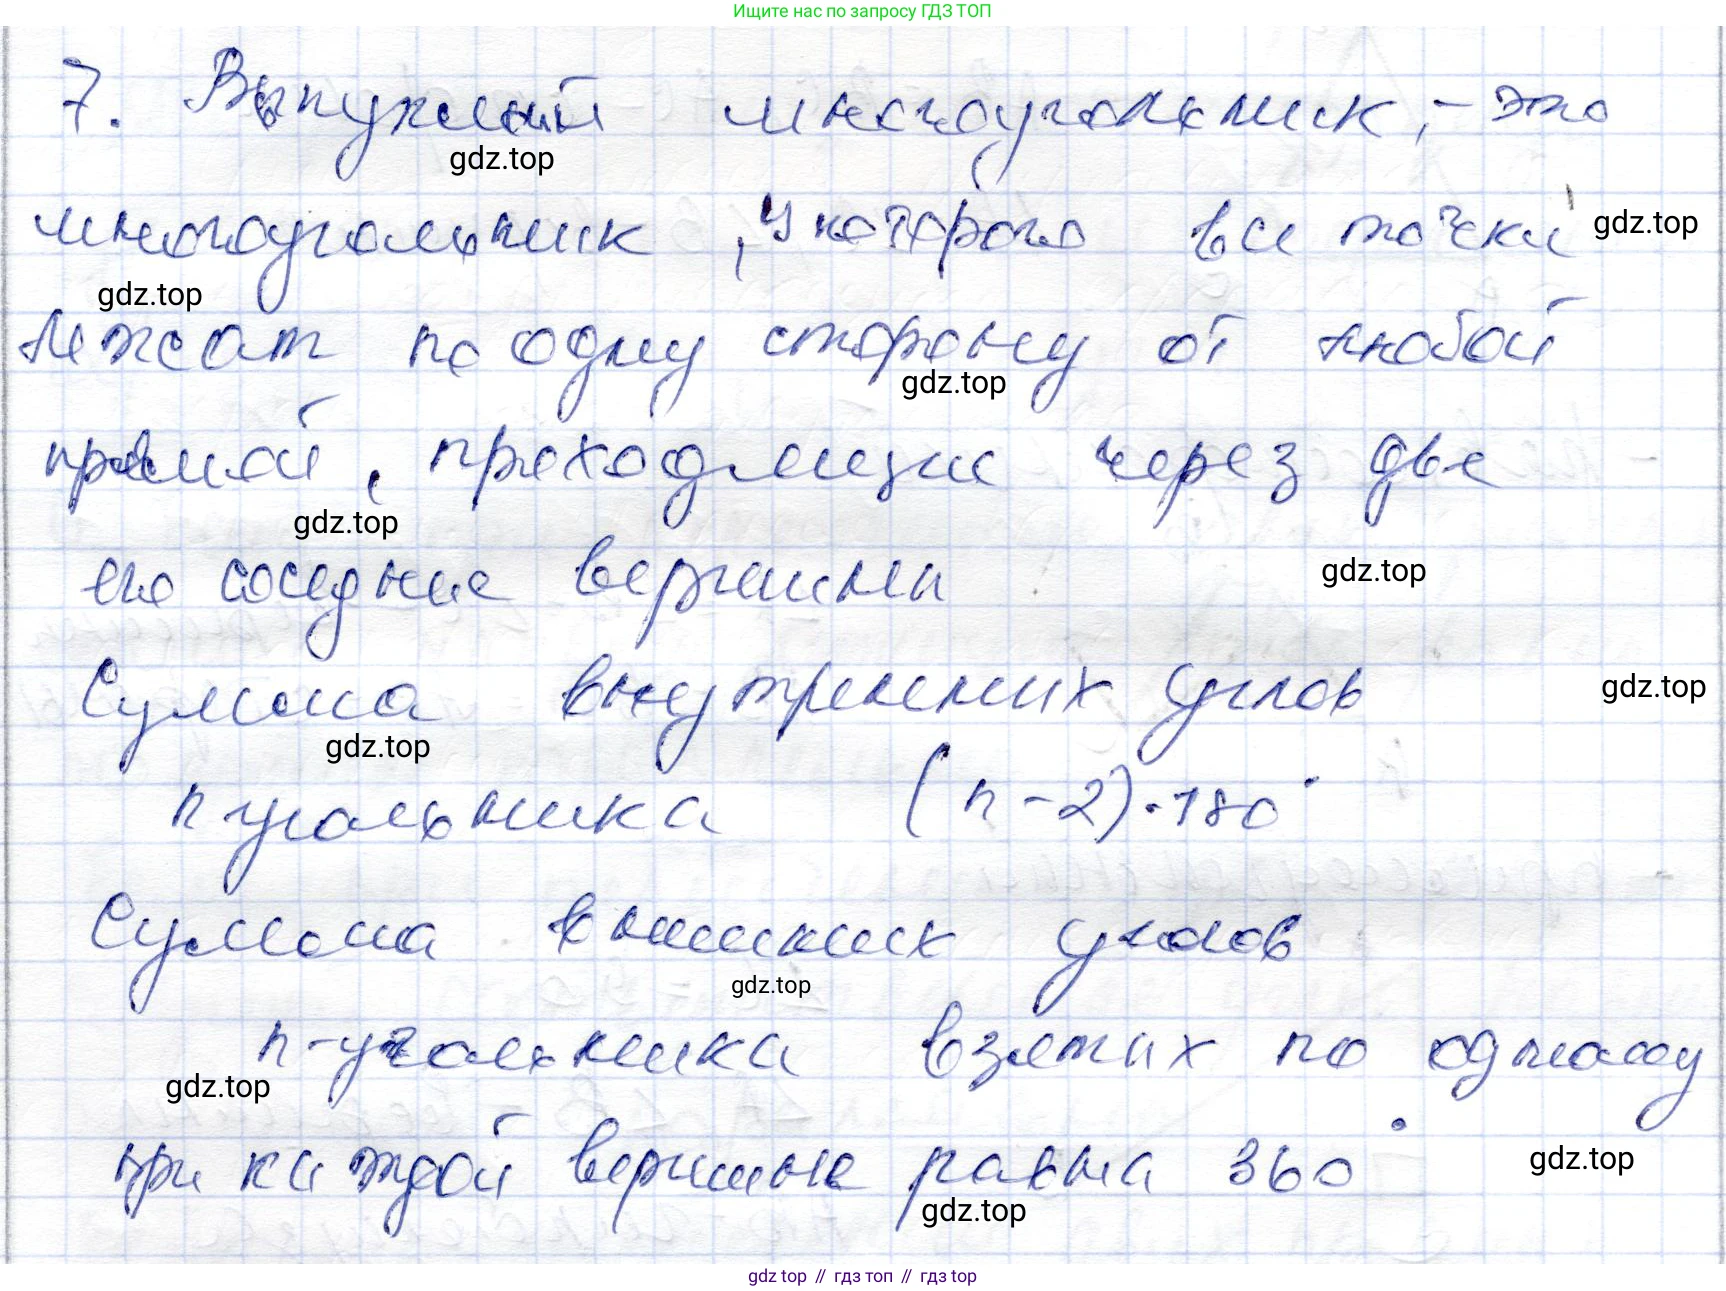 Ищите нас по запросу ГДЗ ТОП
7. Выпуклый многоугольник, - это
gdz.top
многоугольник, у которого все точки
gdz.top
gdz.top
лежат по одну сторону от любой
gdz.top
прямой, проходящии через две
gdz.top
его соседние вершины
gdz.top
Сумма внутренних углов
gdz.top
gdz.top
n угольника (n-2)·180°
Сумма внешних углов
gdz.top
n-угольника взятых по одному
gdz.top
при каждой вершине равна 360°
gdz.top
gdz.top
gdz top // гдз топ // gdz top